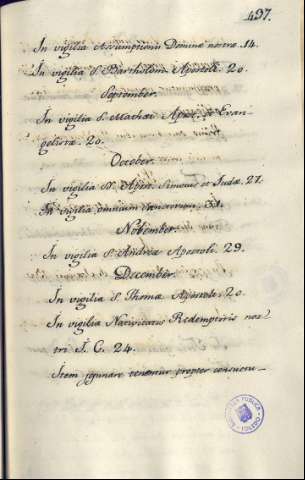 497.
In vigilia Assumptionis Dominæ nostræ. 14.
In vigilia S. Bartholom. Apostoli. 20.
September.
In vigilia S. Mathæi Apost. et Evan-
gelistæ. 20.
October.
In vigilia SS. Apost. Simonis et Judæ. 27.
In vigilia omnium Sanctorum. 31.
November.
In vigilia S. Andreæ Apostoli. 29.
December.
In vigilia S. Thomæ Apostoli. 20.
In vigilia Nativitatis Redemptoris nos-
tri J. C. 24.
Item jejunare tenemur propter consuetu-